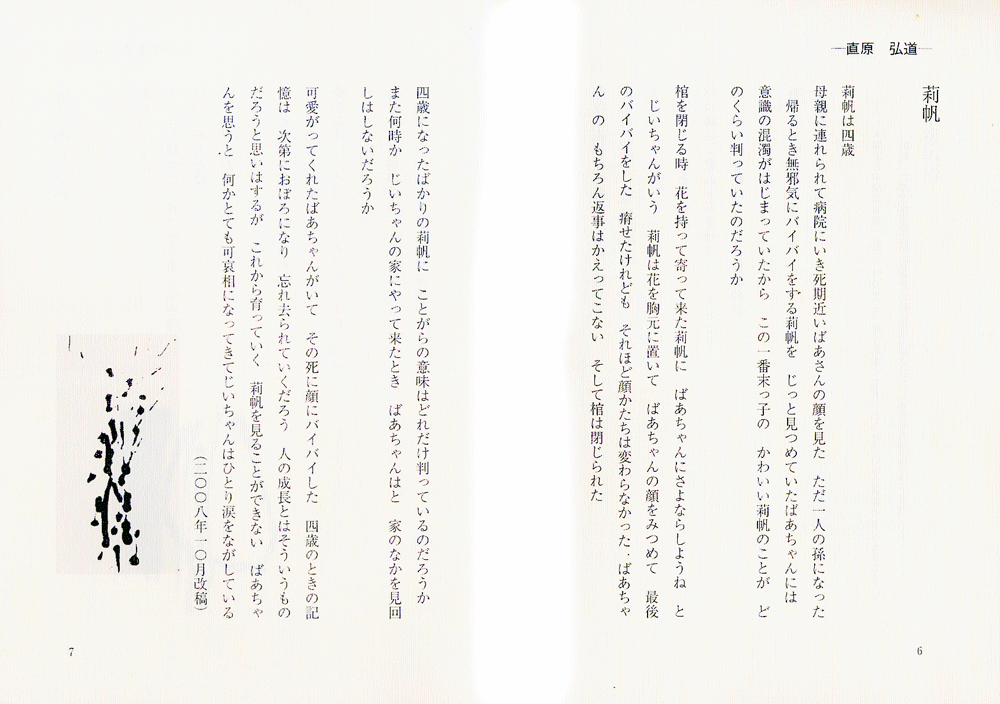 直原　弘道
莉帆
莉帆は四歳
母親に連れられて病院にいき死期近いばあさんの顔を見た　ただ一人の孫になった
帰るとき無邪気にバイバイをする莉帆を　じっと見つめていたばあちゃんには
意識の混濁がはじまっていたから　この一番末っ子の　かわいい莉帆のことが　ど
のくらい判っていたのだろうか
棺を閉じる時　花を持って寄って来た莉帆に　ばあちゃんにさよならしようね　と
じいちゃんがいう　莉帆は花を胸元に置いて　ばあちゃんの顔をみつめて　最後
のバイバイをした　瘠せたけれども　それほど顔かたちは変わらなかった　ばあちゃ
ん　の　もちろん返事はかえってこない　そして棺は閉じられた
6
四歳になったばかりの莉帆に　ことがらの意味はどれだけ判っているのだろうか
また何時か　じいちゃんの家にやって来たとき　ばあちゃんはと　家のなかを見回
しはしないだろうか
可愛がってくれたばあちゃんがいて　その死に顔にバイバイした　四歳のときの記
憶は　次第におぼろになり　忘れ去られていくだろう　人の成長とはそういうもの
だろうと思いはするが　これから育っていく　莉帆を見ることができない　ばあちゃ
んを思うと　何かとても可哀相になってきてじいちゃんはひとり涙をながしている
（二〇〇八年一〇月改稿）
7